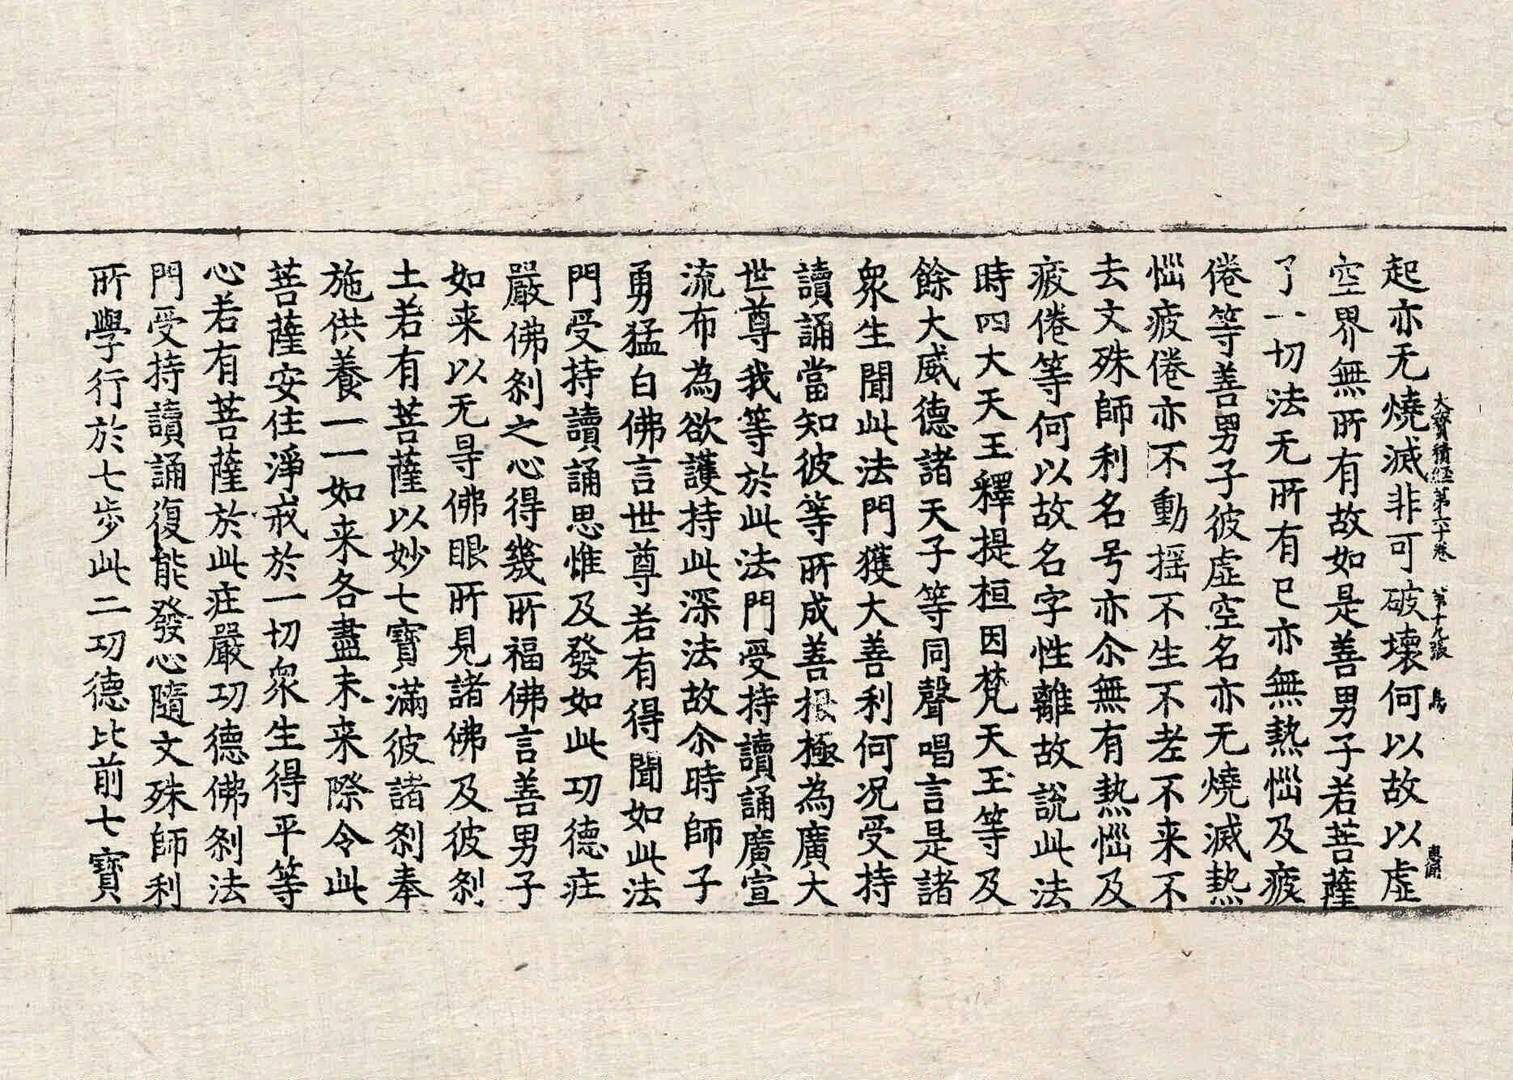 大寶積經第六十卷 第十九張
起亦无燒滅非可破壞何以故以虛
空界無所有故如是善男子若菩薩
了一切法无所有已亦無熱惱及疲
倦等善男子彼虛空名亦无燒滅熱
惱疲倦亦不動搖不生不老不来不
去文殊師利名号亦尒無有熱惱及
疲倦等何以故名字性離故說此法
時四大天王釋提桓因梵天王等及
餘大威德諸天子等同聲唱言是諸
眾生聞此法門獲大善利何况受持
讀誦當知彼等所成善根極為廣大
世尊我等於此法門受持讀誦廣宣
流布為欲護持此深法故尒時師子
勇猛白佛言世尊若有得聞如此法
門受持讀誦思惟及發如此功德莊
嚴佛剎之心得幾所福佛言善男子
如来以无㝵佛眼所見諸佛及彼剎
土若有菩薩以妙七寶滿彼諸剎奉
施供養一一如来各盡未来際令此
菩薩安住淨戒於一切眾生得平等
心若有菩薩於此莊嚴功德佛剎法
門受持讀誦復能發心隨文殊師利
所學行於七步此二功德比前七寶